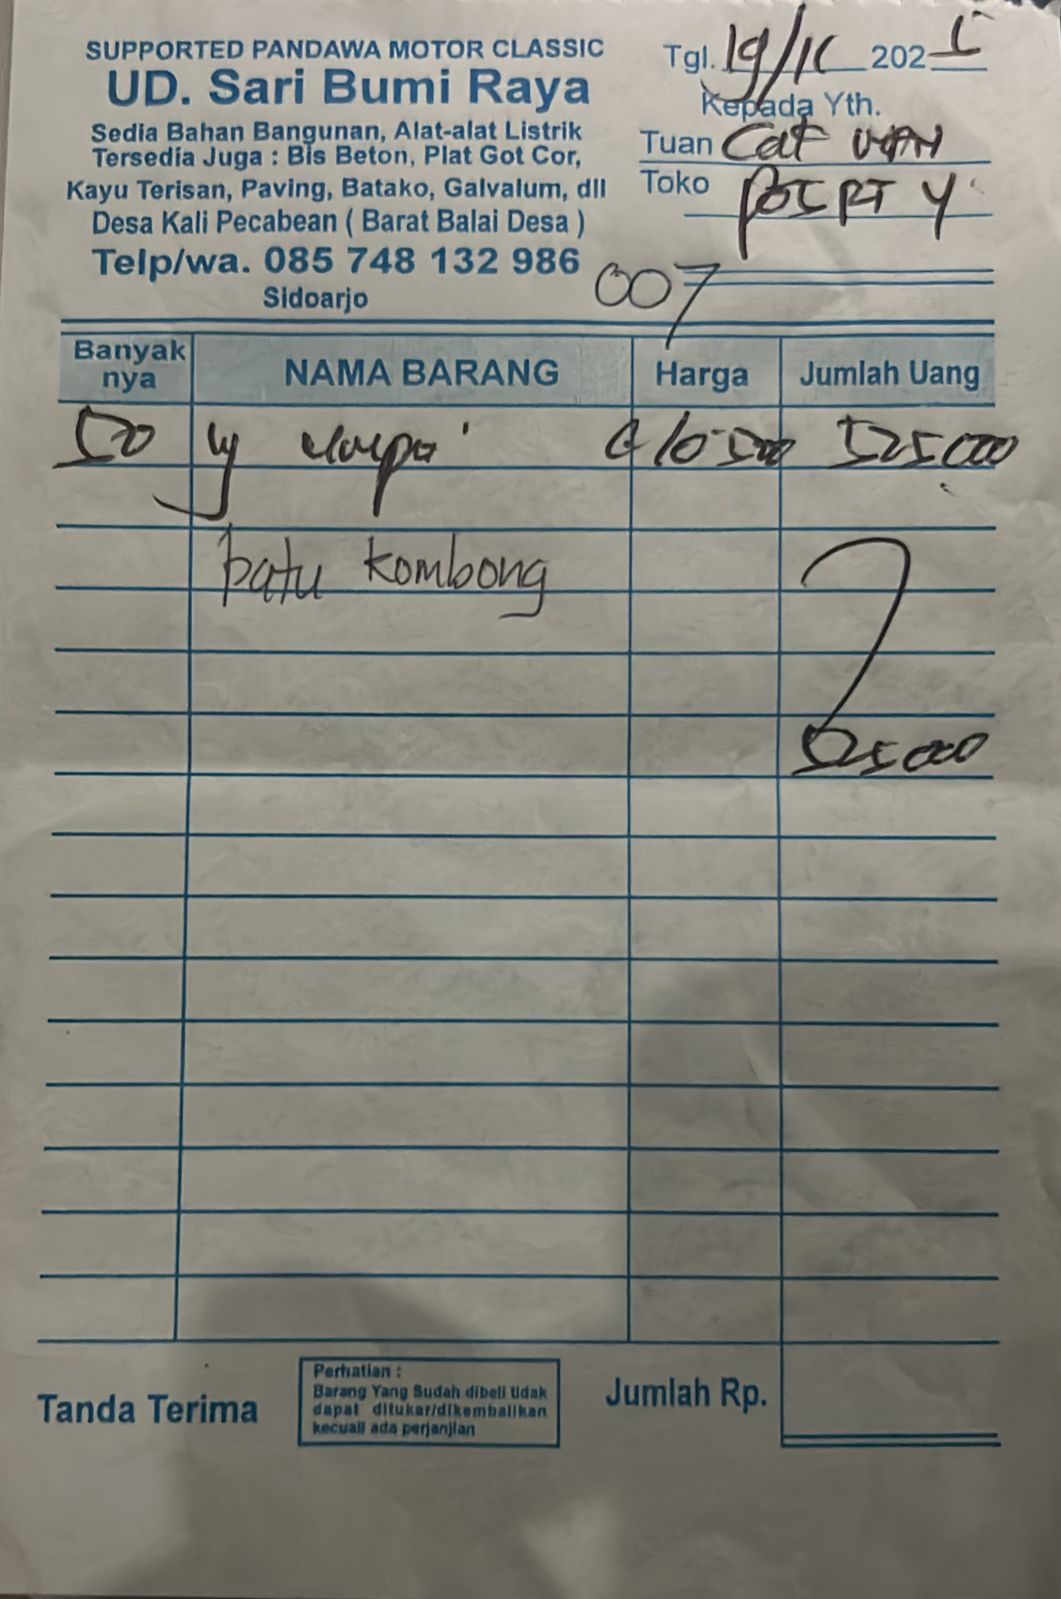 SUPPORTED PANDAWA MOTOR CLASSIC
UD. Sari Bumi Raya
Sedia Bahan Bangunan, Alat-alat Listrik
Tersedia Juga : Bis Beton, Plat Got Cor,
Kayu Terisan, Paving, Batako, Galvalum, dll
Desa Kali Pecabean ( Barat Balai Desa )
Telp/wa. 085 748 132 986
Sidoarjo
Tgl. 19/ 202
Kepada Yth.
Tuan Cat
Toko
007
Banyak nya NAMA BARANG Harga Jumlah Uang
50 10 500 525000
batu kombong
525000
Tanda Terima
Perhatian :
Barang Yang Sudah dibeli tidak
dapat ditukar/dikembalikan
kecuali ada perjanjian
Jumlah Rp.